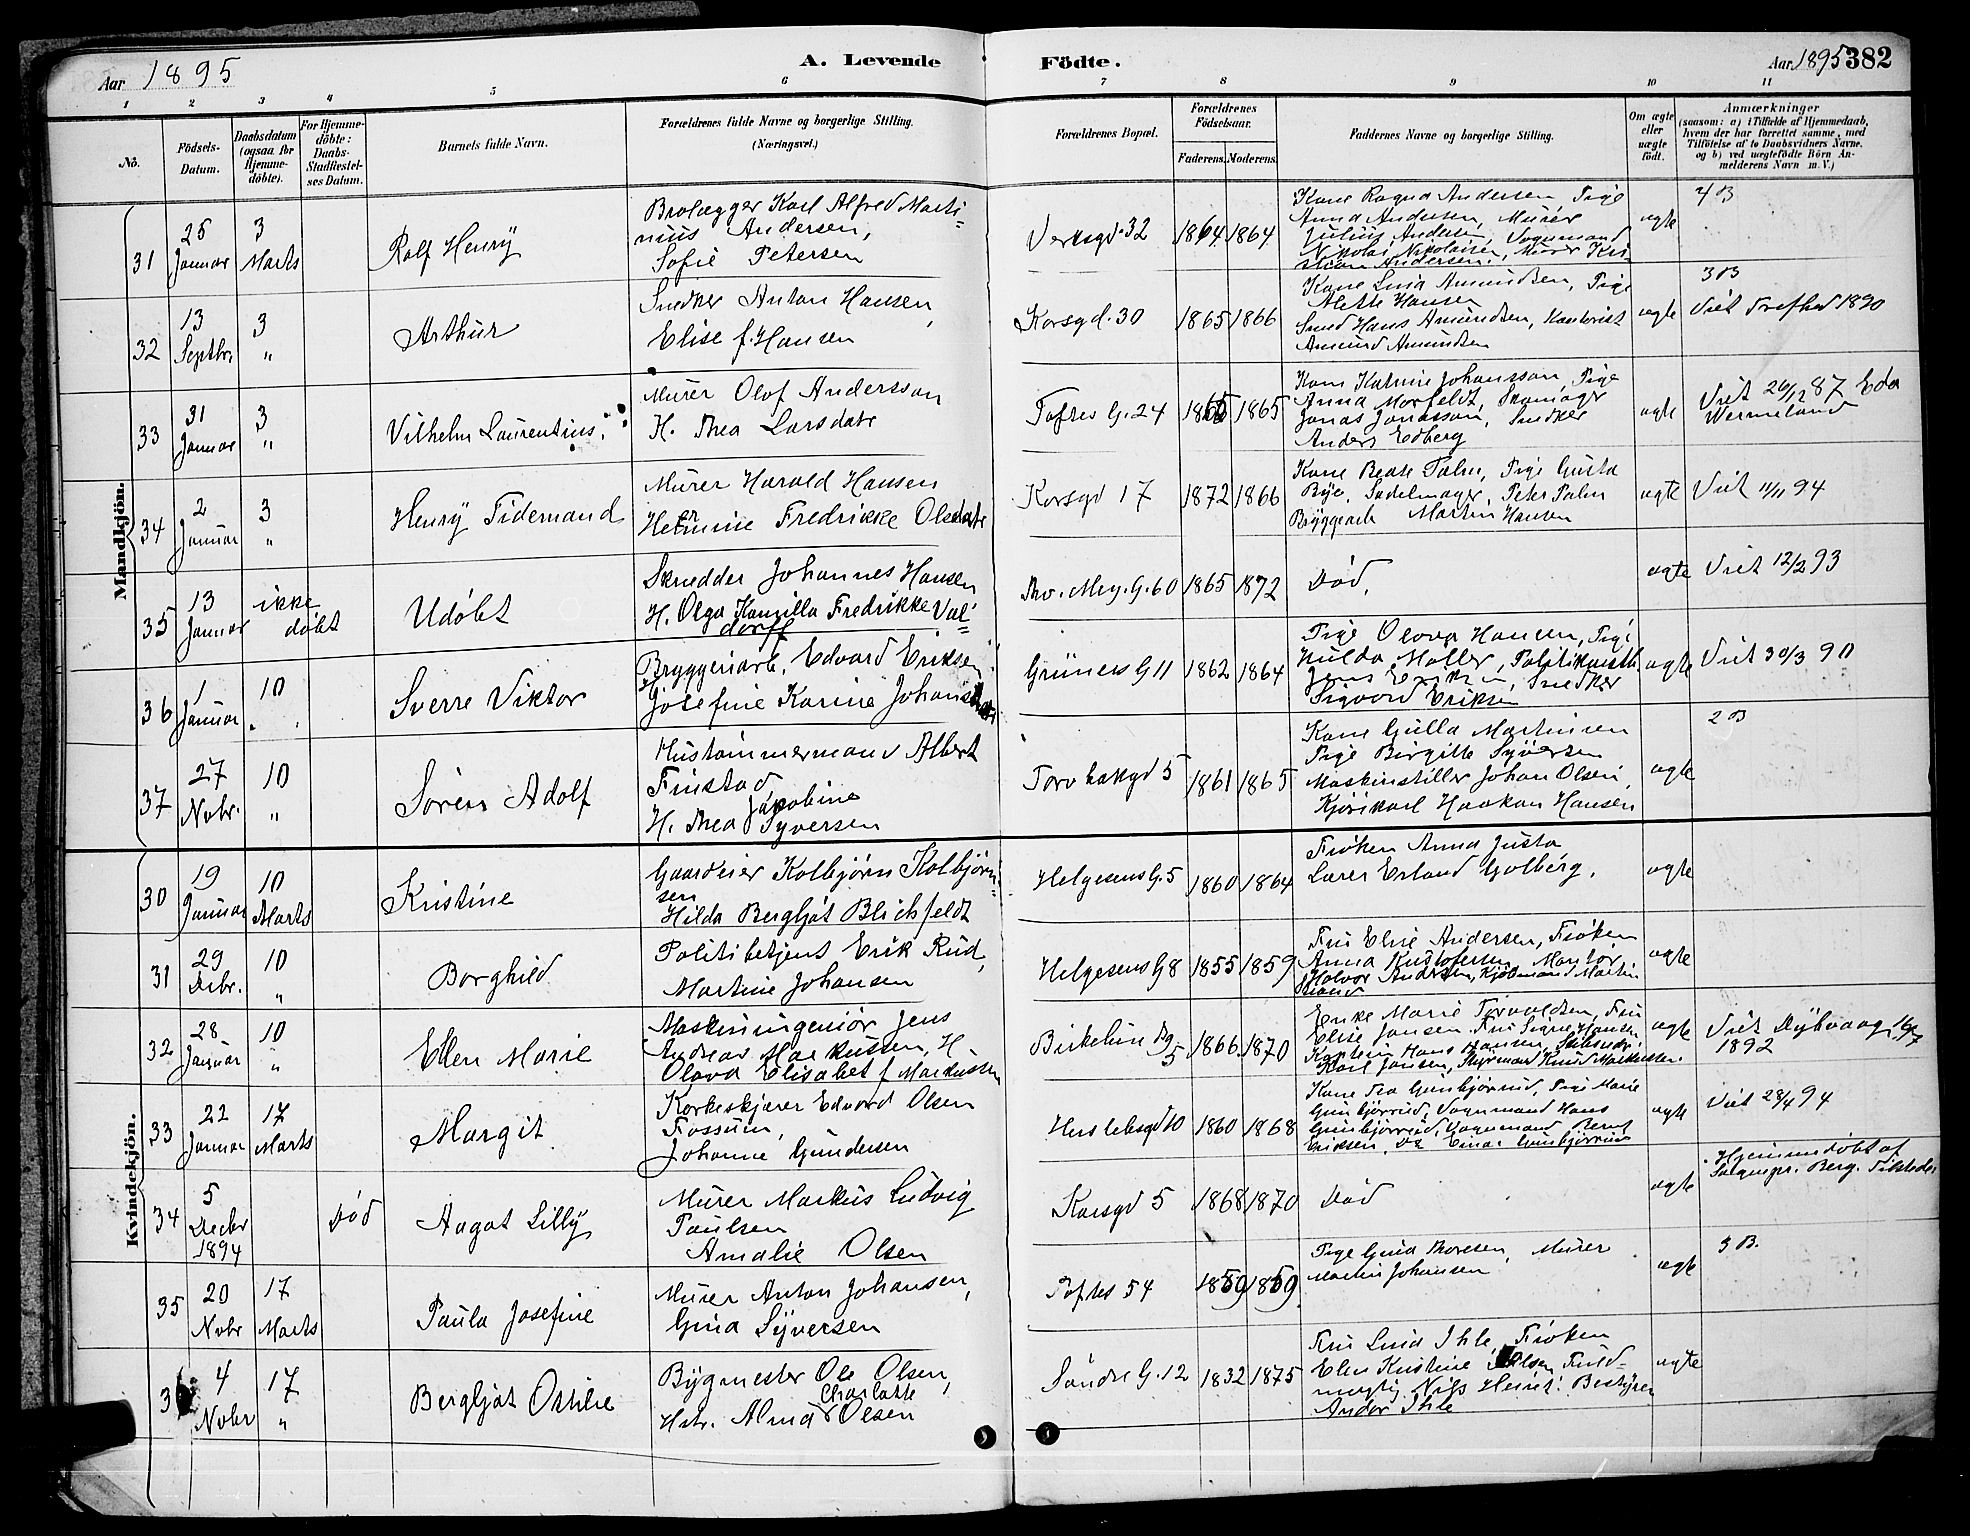 Aar 1895
A. Levende Födte.
Aar 1895 382
1 2 3 4 5 6 7 8 9 10 11
No.
Födsels-
Datum.
Daabsdatum
(ogsaa for
Hjemme-
döbte).
For Hjemme-
döbte:
Daabs-
Stadfæstel-
ses Datum.
Barnets fulde Navn.
Forældrenes fulde Navne og borgerlige Stilling.
(Næringsvei.)
Forældrenes Bopæl.
Forældrenes
Födselsaar.
Faderens. Moderens.
Faddernes Navne og borgerlige Stilling.
Om ægte
eller
uægte
födt.
Anmærkninger
(saasom: a) i Tilfælde af Hjemmedaab,
hvem der har forrettet samme, med
Tilföielse af to Daabsvidners Navne,
og b) ved uægtefödte Börn An-
melderens Navn m. V.)
Mandkjön.
31
25
Januar
3
Marts
Rolf Henry
Brolægger Karl Alfred Marti-
nius Andersen,
Sofie Petersen
Verksgd. 32
1864 1864
Kone Ragna Andersen, Pige
Anna Andersen, Murer
Julius Andersen, Vognmand
Nikolai Nikolaisen, Murer Kri-
stian Andersen.
ægte
4 B
32
13
Septbr.
3
"
Arthur
Snedker Anton Hansen,
Elise f. Hansen
Korsgd. 30
1865 1866
Kone Lina Amundsen, Pige
Alette Hansen
Smed Hans Amundsen, Kontorist
Amund Amundsen
ægte
3 B
Viet Trefhed 1890
33
31
Januar
3
"
Vilhelm Laurentius
Murer Olof Andersson
H. Thea Larsdatr
Toftes G. 24
1865 1865
Kone Katrine Johansson, Pige
Anna Morfeldt, Skomager
Jonas Jonasson, Snedker
Anders Edberg
ægte
Viet 26/12 87 Eda
Wermeland
34
2
Januar
3
"
Henry Tidemand
Murer Harald Hansen
Hermine Fredrikke Olsdatr
Korsgd 17
1872 1866
Kone Beate Palm, Pige Gusta
Bye, Sadelmager, Peter Palm
Bryggearb Martin Hansen
ægte
Viet 11/11 94
35
13
Januar
ikke
döbt
Udöbt
Skredder Johannes Hansen
H. Olga Kamilla Fredrikke Val-
dorff
Thv. Mey. G. 60
1865 1872
Död.
ægte
Viet 12/2 93
36
1
Januar
10
" "
Sverre Viktor
Bryggeriarb. Edvard Eriksen
Josefine Karine Johans
Grüners G 11
1862 1864
Pige Olava Hansen, Pige
Hulda Moller, Politikonstb
Jens Eriksen, Snedker
Sigvard Eriksen
ægte
Viet 30/3 90
37
27
Nobr.
10
"
Sören Adolf
Hustömmermand Albert
Finstad
H. Thea Jakobine
Syversen
Torvbakgd 5
1861 1865
Kone Gulla Martinsen
Pige Birgitte Syversen
Maskinstiller Johan Olsen,
Kjörekarl Haakon Hansen
ægte
2 B
Kvindekjön.
30
19
Januar
10
Marts
Kristine
Gaardeier Kolbjörn Kolbjörn-
sen
Hilda Bergljot Blichfeldt
Helgesens G. 5
1860 1864
Fröken Anna Justa
Lærer Erland Golberg.
ægte
31
29
Decbr.
10
"
Borghild
Politibetjent Erik Rud,
Martine Johansen
Helgesens G 8
1855 1859
Fru Elise Andersen, Fröken
Anna Kristofersen, Montör
Halvor Andersen, Kjöbmand Martin
ægte
32
28
Januar
10
"
Ellen Marie
Maskiningeniör Jens
Andreas Markussen, H.
Olava Elisabet f Markussen
Birkelun Bg
5
1866 1870
Enke Marie Torvaldsen, Fru
Elise Jansen. Fru Signe Hansen
Kaptein Hans Hansen, Skibsredr
Karl Jansen, Styrmand Knud Markussen.
ægte
Viet Dybvaag
1892
33
22
Januar
17
Marts
Margit
Korkeskjærer Edvard Olsen
Fossum,
Johanne Gundersen
Herslebsgd 10
1860 1868
Kone Gunbjörrud, Pige Marie
Gunbjörrud, Vognmand Hans
Gunbjörrud, Vognmand Bernt
Eriksen, Do Einar Gunbjörrud
ægte
Viet 28/4 94
34
5
Decbr
1894
Död
Aagot Lilly
Murer Markus Ludvig
Paulsen
Amalie Olsen
Korsgd 5
1868 1870
Död
ægte
Hjemmedöbt af
Sognepr. Berg.
35
20
Nobr
17
Marts
Paula Josefine
Murer Anton Johansen,
Gina Syversen
Toftes 54
1859 1859
Pige Gina Thoresen, Murer
Martin Johansen
ægte
3 B.
3
4
Nobr
17
"
Bergljot Ottilie
Bygmester Ole Olsen,
Hstr. Alma Charlotte Olsen
Söndre G. 12
1832 1875
Fru Lina Ihle, Fröken
Elen Kristine Olsen, Fuld-
mægtig Nils Bestyrer
Andor Ihle
ægte